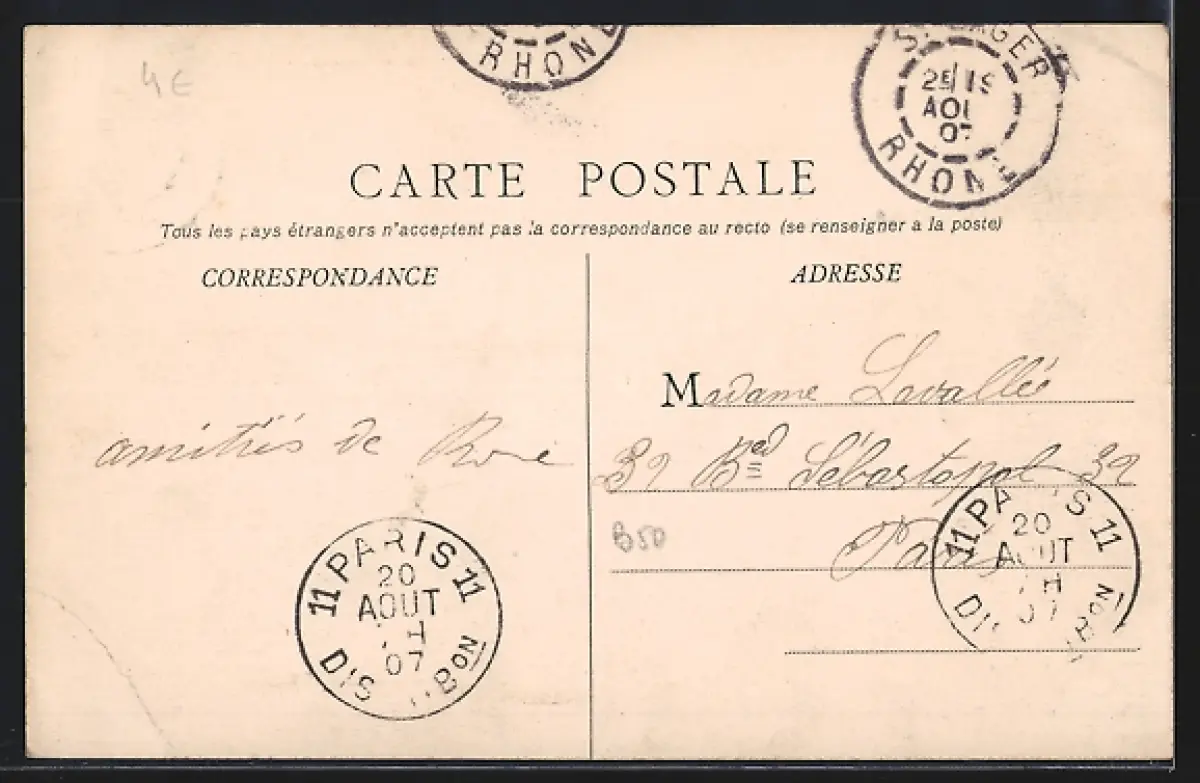 RHONE
ST LAGER
2E/19
AOU
07
RHONE
4€
CARTE POSTALE
Tous les pays étrangers n'acceptent pas la correspondance au recto (se renseigner a la poste)
CORRESPONDANCE
ADRESSE
Madame Lavallée
amitiés de Rose
39 Bed Sébastopol 39
B50
Paris
11 PARIS 11
20
AOUT
H
07
DISTRIBON
11 PARIS 11
20
AOUT
H
07
DISTRIBON